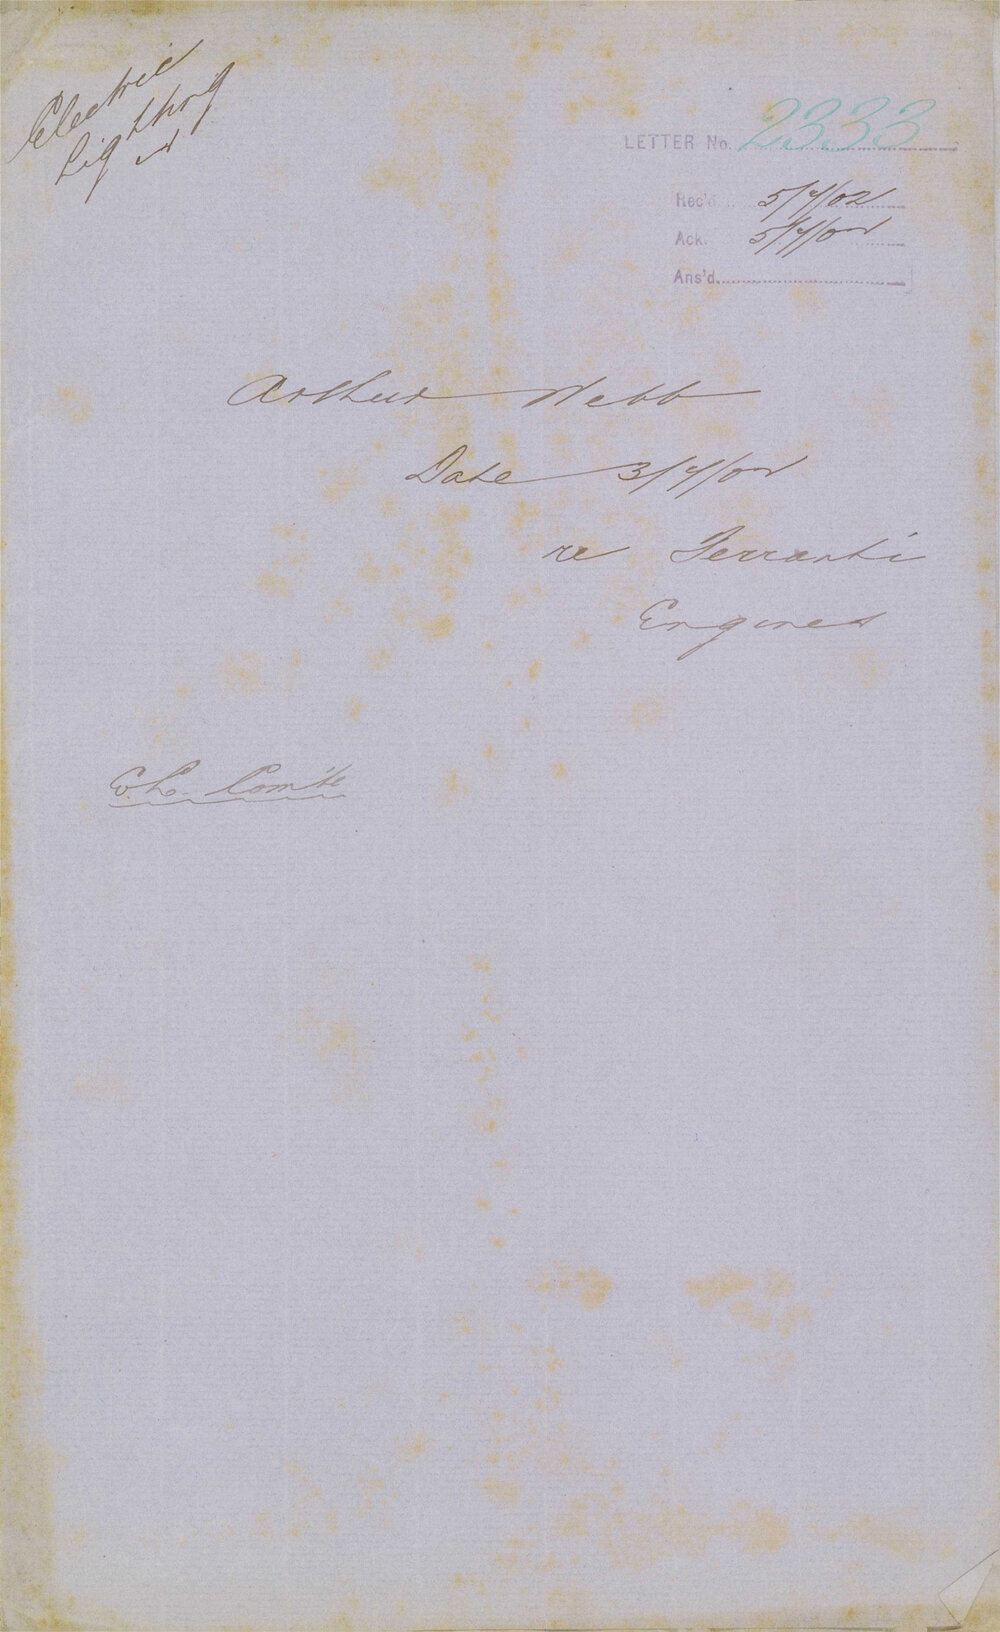 Electric
Lighting
LETTER No. 2333
Rec'd. 5/4/02
Ack. 5/4/02
Ans'd.
Arthur Webb
Date 3/4/02
re Ferranti
Engines
E.L. Comte